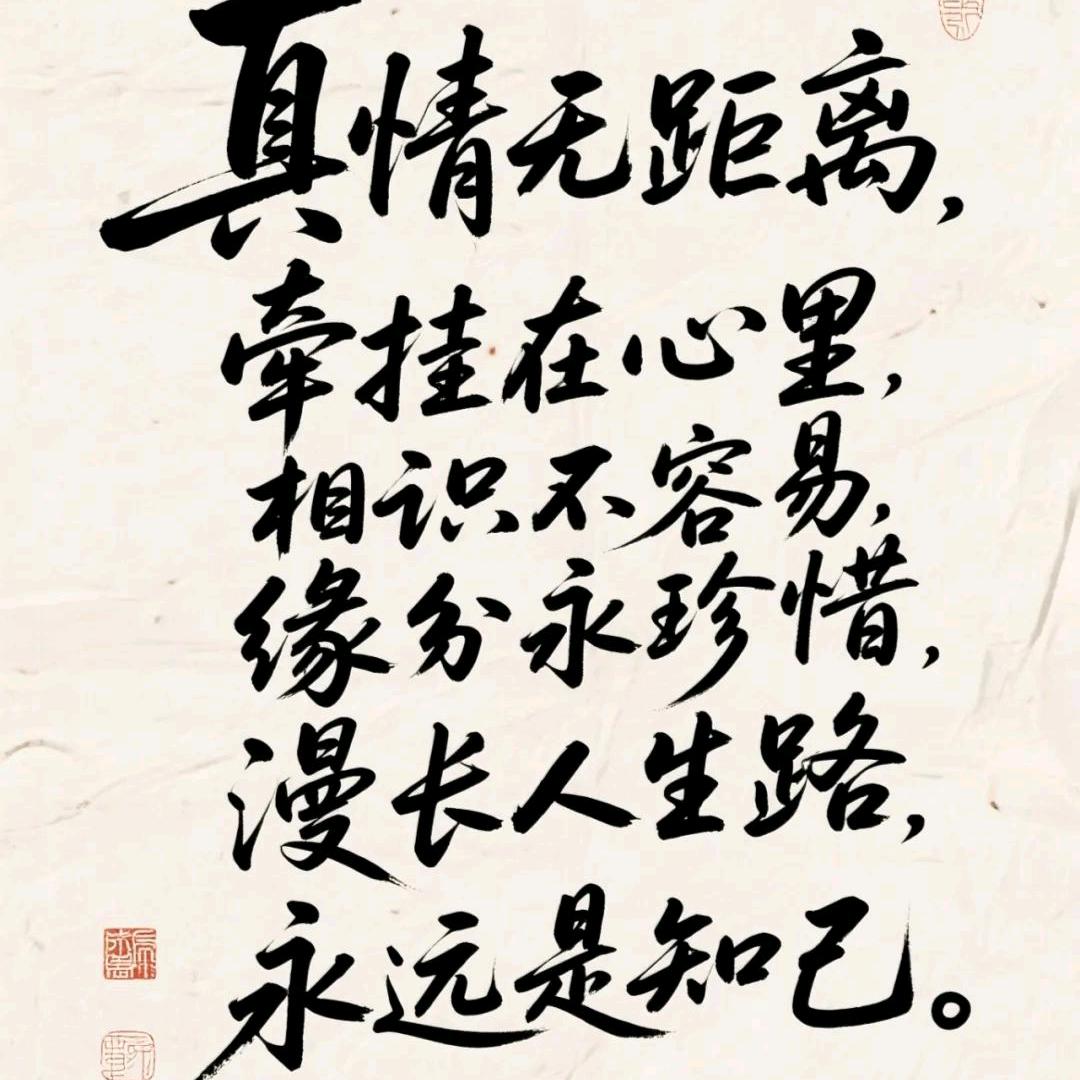 真情无距离，
牵挂在心里，
相识不容易，
缘分永珍惜，
漫长人生路，
永远是知己。